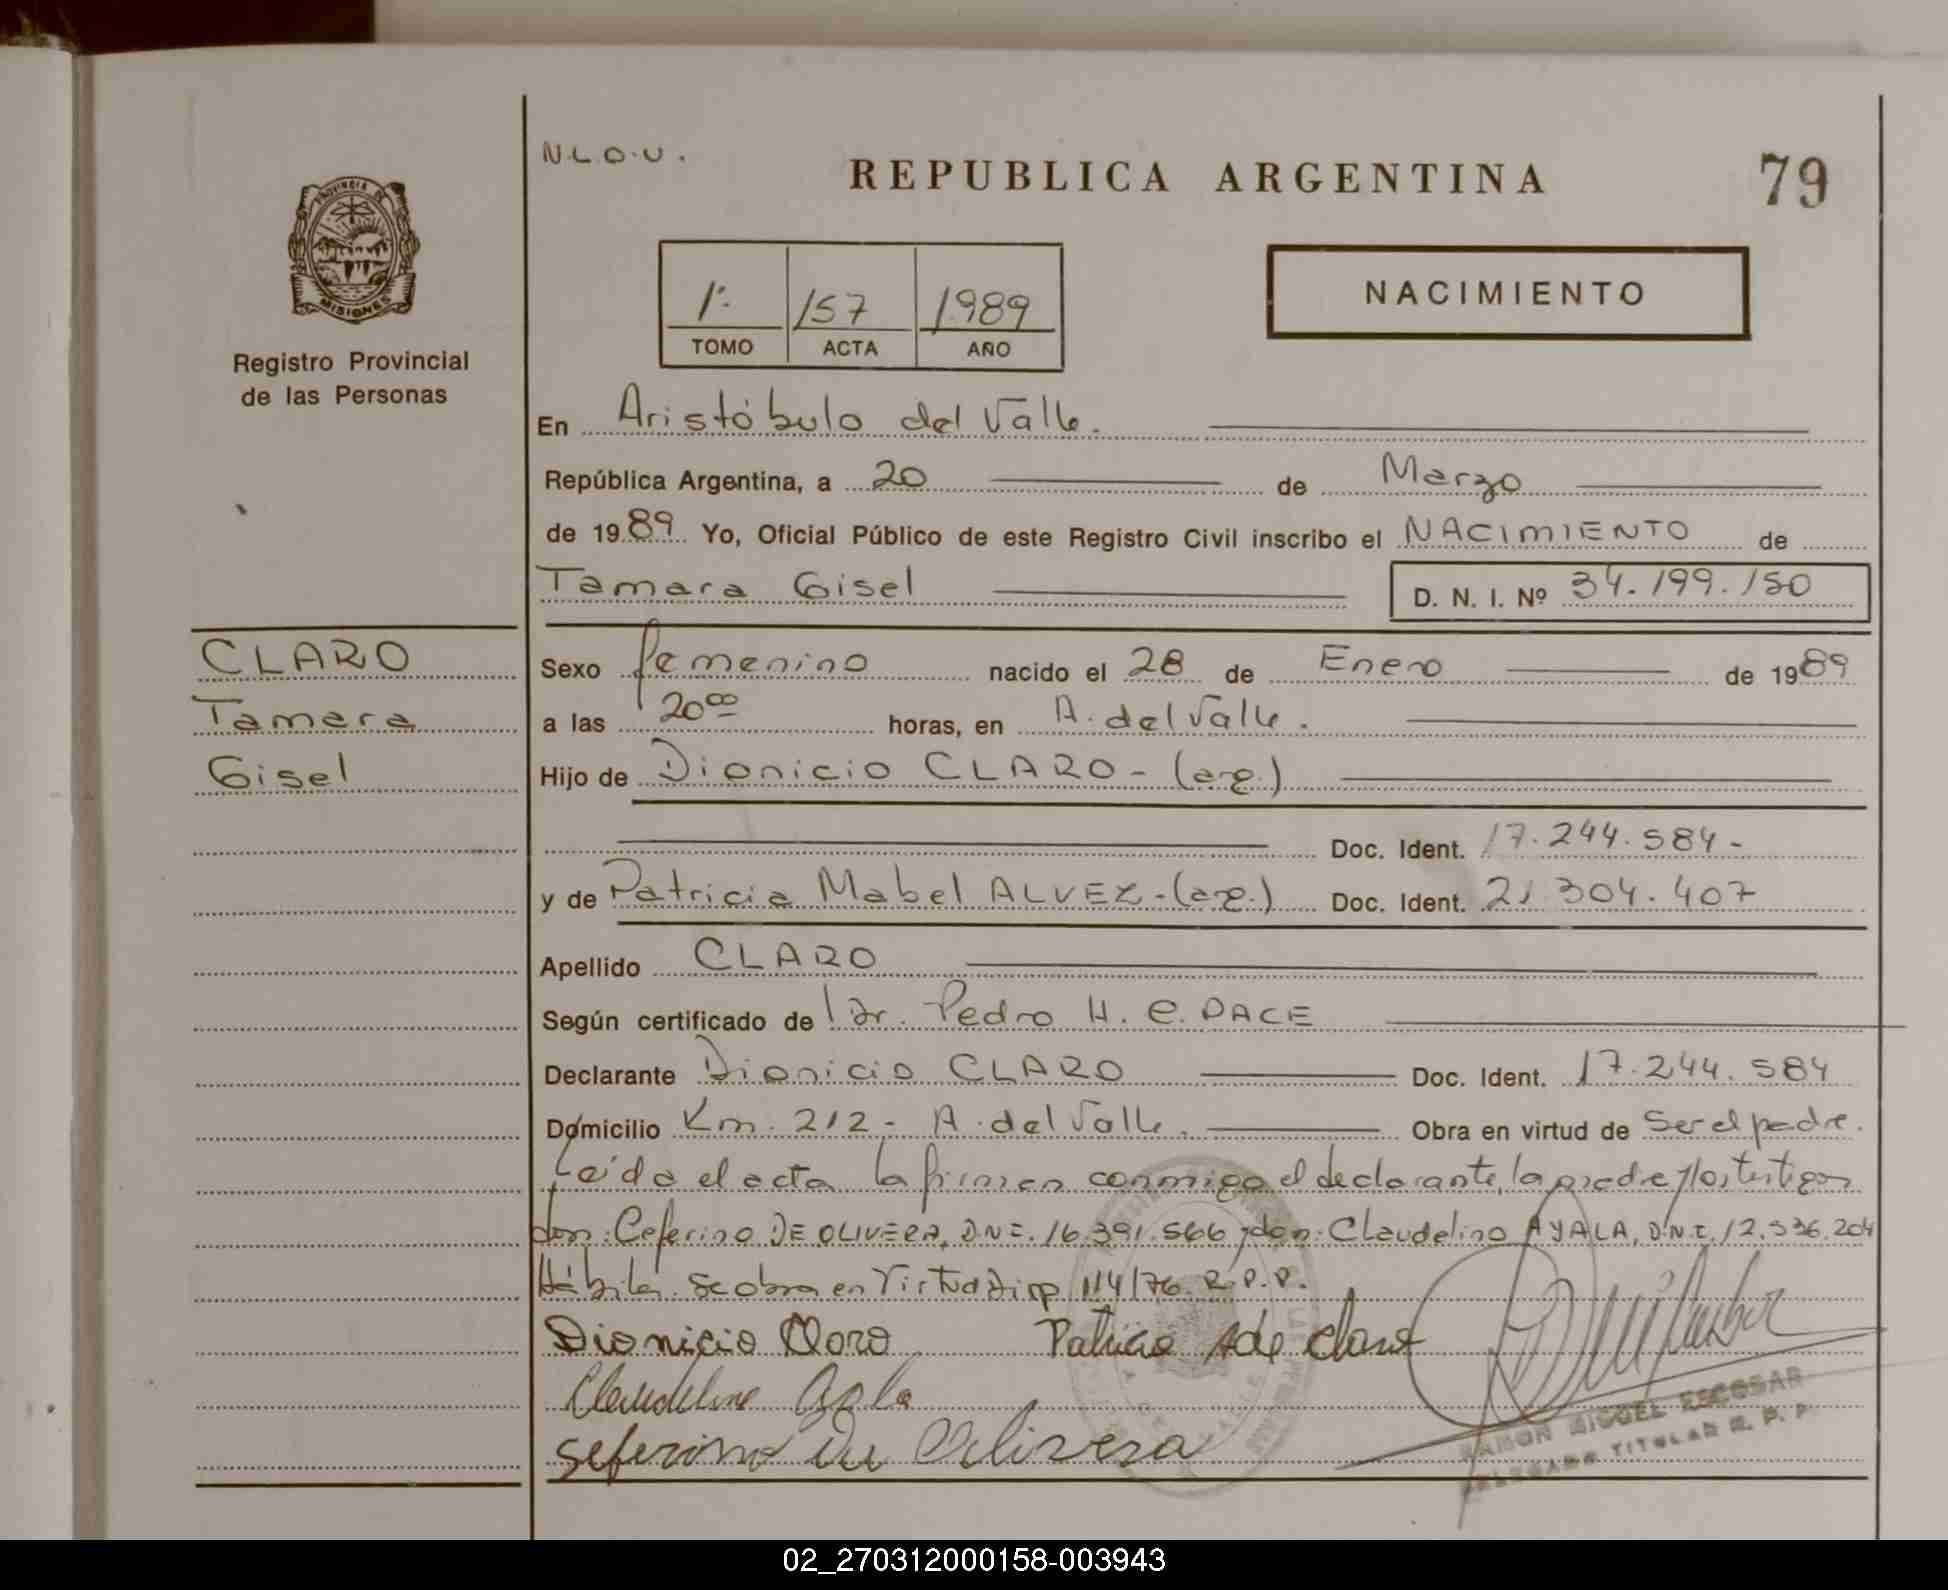 N.L.O.U.
REPUBLICA ARGENTINA
79
PROVINCIA DE
MISIONES
Registro Provincial
de las Personas
1º
157
1989
TOMO
ACTA
AÑO
NACIMIENTO
En Aristóbulo del Valle.
República Argentina, a 20 de Marzo
de 1989 Yo, Oficial Público de este Registro Civil inscribo el NACIMIENTO de
Tamara Gisel
D. N. I. Nº 34.199.150
CLARO
Tamara
Gisel
Sexo femenino nacido el 28 de Enero de 1989
a las 20⁰⁰ horas, en A. del Valle.
Hijo de Dionicio CLARO - (arg.)
Doc. Ident. 17.244.584-
y de Patricia Mabel ALVEZ - (arg.) Doc. Ident. 21.304.407
Apellido CLARO
Según certificado de Dr. Pedro H. C. PACE
Declarante Dionicio CLARO Doc. Ident. 17.244.584
Domicilio Km. 212 - A. del Valle. Obra en virtud de Ser el padre.
Leída el acta la firman conmigo el declarante, la madre y los testigos
don: Ceferino DE OLIVERA, D.N.I. 16.391.566 y don: Claudelino AYALA, D.N.I. 12.536.204
Hábiles. Se obra en Virtud Disp. 114/76. R.P.P.
Dionicio Claro Patricia A de Claro
Seferino De Olivera
RAMON MIGUEL ESCOBAR
DELEGADO TITULAR R. P. P.
02_270312000158-003943